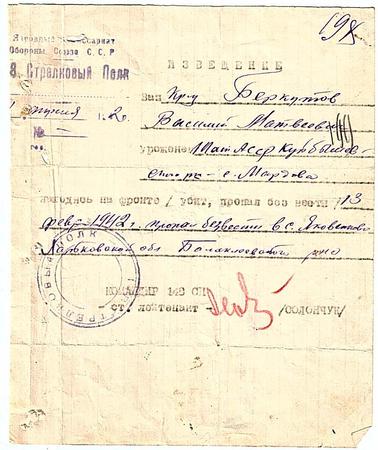 198
Народный Комиссариат
Обороны Союза С.С.Р
8. Стрелковый Полк
апреля 1942 г.
№ -
ИЗВЕЩЕНИЕ
Ваш Беркутов
Василий Матвеевич
уроженец Тат АССР Куйбышев
с.
находясь на фронте / убит, пропал без вести 13
февр 1942 г. пропал безвести в с. Яковенково
Харьковской обл Балаклеевского р-на
КОМАНДИР 148 СП
ст. лейтенант - /СОЛОНУЧНУК/
СТРЕЛКОВЫЙ ПОЛК